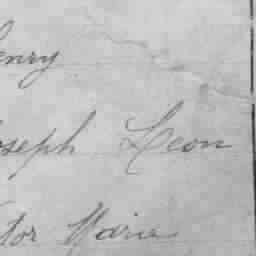 enry
oseph Leon
tor Marie